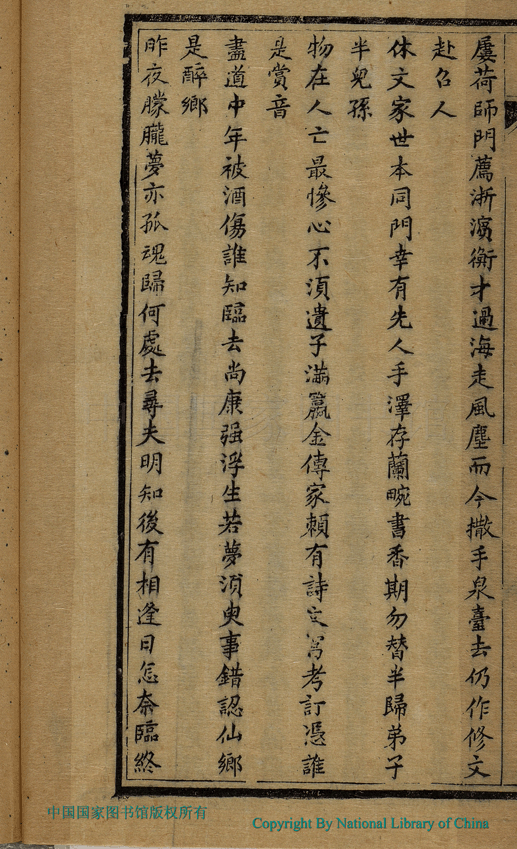 屢荷師門薦浙濱衡才過海走風塵而今撒手泉臺去仍作修文
赴召人
休文家世本同門幸有先人手澤存蘭畹書香期勿替半歸弟子
半兒孫
物在人亡最慘心不須遺子滿籯金傳家賴有詩文富考訂憑誰
是賞音
盡道中年被酒傷誰知臨去尚康强浮生若夢須臾事錯認仙鄉
是醉鄉
昨夜朦朧夢亦孤魂歸何處去尋夫明知後有相逢日怎奈臨終
中国国家图书馆版权所有
Copyright By National Library of China